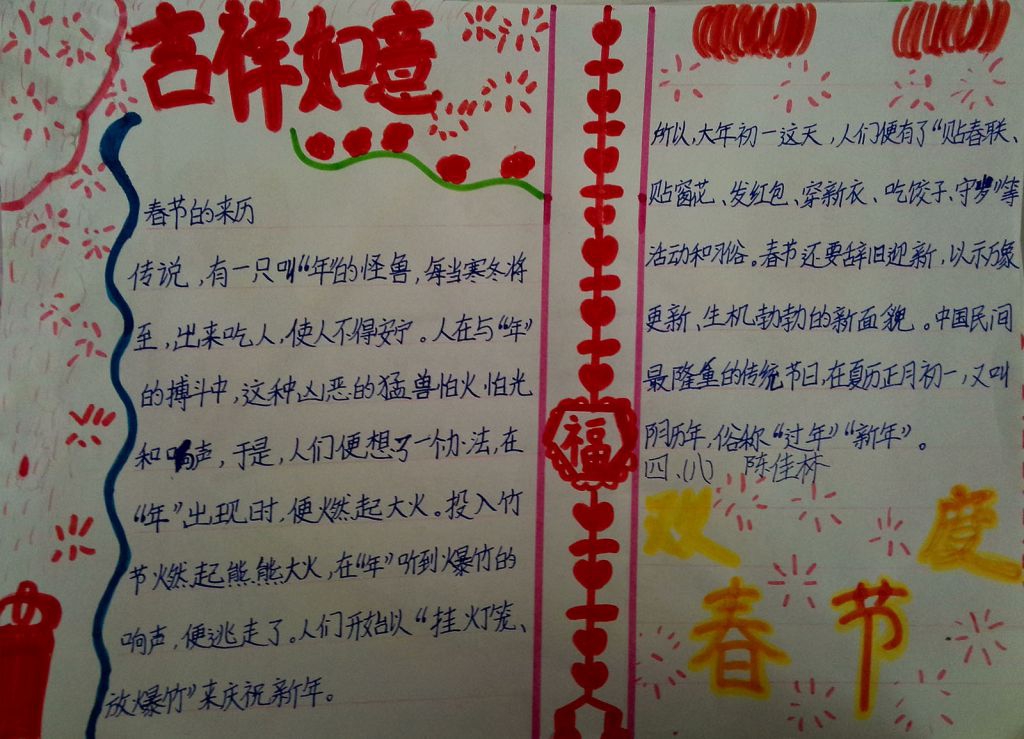 吉祥如意
春节的来历
传说,有一只叫“年”的怪兽,每当寒冬将
至,出来吃人,使人不得安宁。人在与“年”
的搏斗中,这种凶恶的猛兽怕火怕光
和响声,于是,人们便想了一个办法,在
“年”出现时,便燃起大火。投入竹
节燃起熊熊大火,在“年”听到爆竹的
响声,便逃走了。人们开始以“挂灯笼、
放爆竹”来庆祝新年。
福
所以,大年初一这天,人们便有了“贴春联、
贴窗花、发红包、穿新衣、吃饺子、守岁”等
活动和习俗。春节还要辞旧迎新,以示万象
更新、生机勃勃的新面貌。中国民间
最隆重的传统节日,在夏历正月初一,又叫
阴历年,俗称“过年”“新年”。
四.(八) 陈佳林
欢度
春节